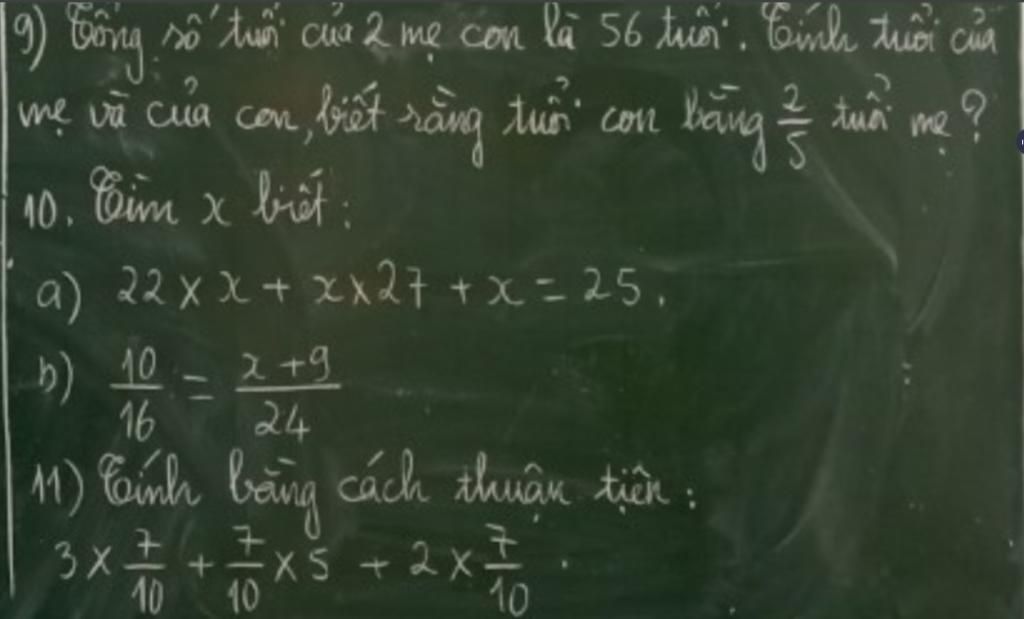 9) Tổng số tuổi của 2 mẹ con là 56 tuổi. Tính tuổi của
mẹ và của con, biết rằng tuổi con bằng 2/5 tuổi mẹ?
10. Tìm x biết:
a) 22 × x + x × 27 + x = 25.
b) 10/16 = x + 9/24
11) Tính bằng cách thuận tiện:
3 × 7/10 + 7/10 × 5 + 2 × 7/10.